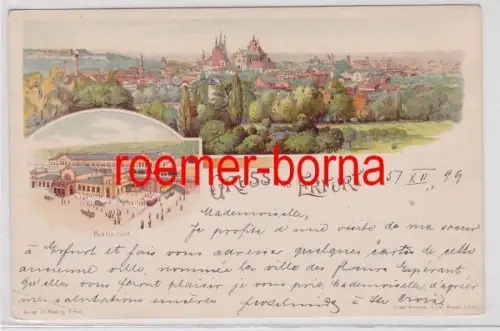 roemer-borna
GRUSS AUS ERFURT
5/XII 99
Bahnhof
Mademoiselle,
Je profite d'une visite de ma soeur
à Erfurt et fais vous adresser quelques cartes de cette
ancienne ville, nommée la ville des fleurs Espérant
qu'elles vous feront plaisir je vous prie Mademoiselle d'agréer
mes salutations sincères à Ste Croix